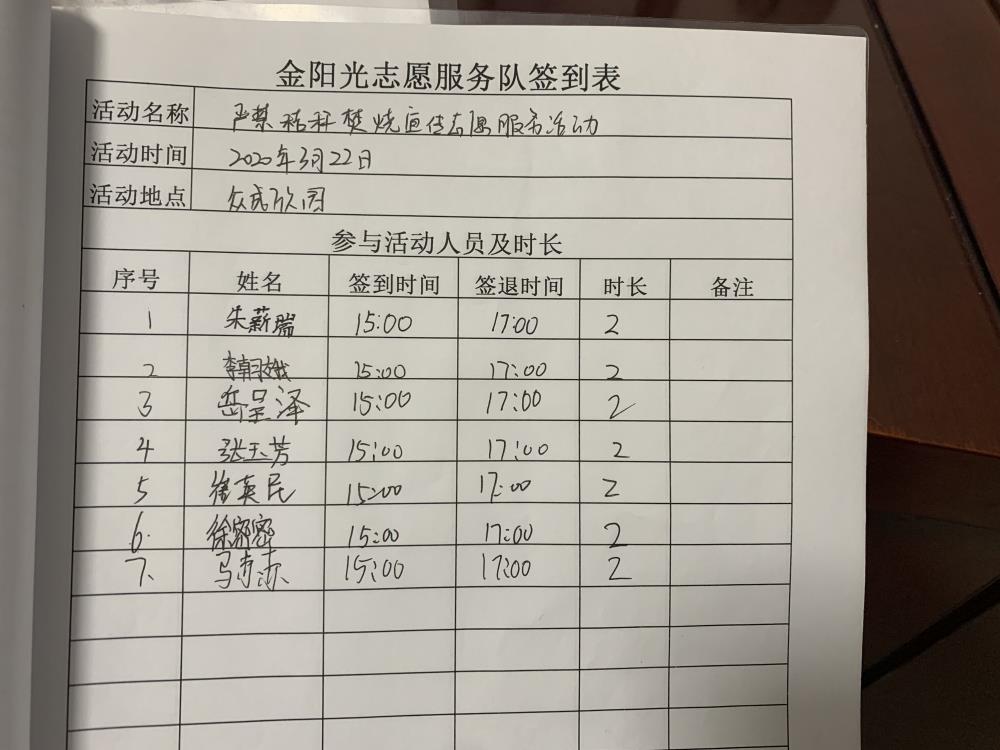 金阳光志愿服务队签到表
活动名称 严禁秸秆焚烧宣传志愿服务活动
活动时间 2020年3月22日
活动地点 众成欣园
参与活动人员及时长
序号 姓名 签到时间 签退时间 时长 备注
1 朱薪瑞 15:00 17:00 2
2 15:00 17:00 2
3 岳呈泽 15:00 17:00 2
4 张玉芳 15:00 17:00 2
5 英民 15:00 17:00 2
6. 徐密密 15:00 17:00 2
7. 马 15:00 17:00 2